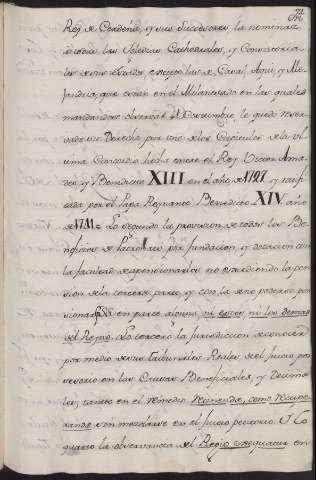 Rey de Cerdeña, y sus Succesores, la nomina
à todas las Yglesias Cathedrales, y Consistoria
les de sus Estados excepto las de Casal, Aqui, y Ale
jandria que estan en el Milanesado en las quales
mandandose observar la costumbre, le quedo reser
vado su Derecho por uno de los Capitulos de la ul
tima Concordia hecha entre el Rey Victor Ama
deo, y Benedicto XIII en el año de 1727, y ratifi
cada por el Papa Reynante Benedicto XIV año
de 1741. Lo segundo la provision de todos los Be
neficios de Patronato por fundacion, y dotacion con
la facultad de apensionarlos no excediendo la pen
sion de la tercera parte, y con la de no poderse pen
sionar en parte alguna, ni estos, ni los demas
del Reyno. Lo tercero la Jurisdiccion de conocer
por medio de sus Tribunales Reales de el Juicio po
sesorio en las Causas Beneficiales, y Decima
les, tanto en el remedio retinendæ, como recupe
randæ sin mezclarse en el Juicio petitorio. Y lo
quarto la observancia del Regio exequatur en